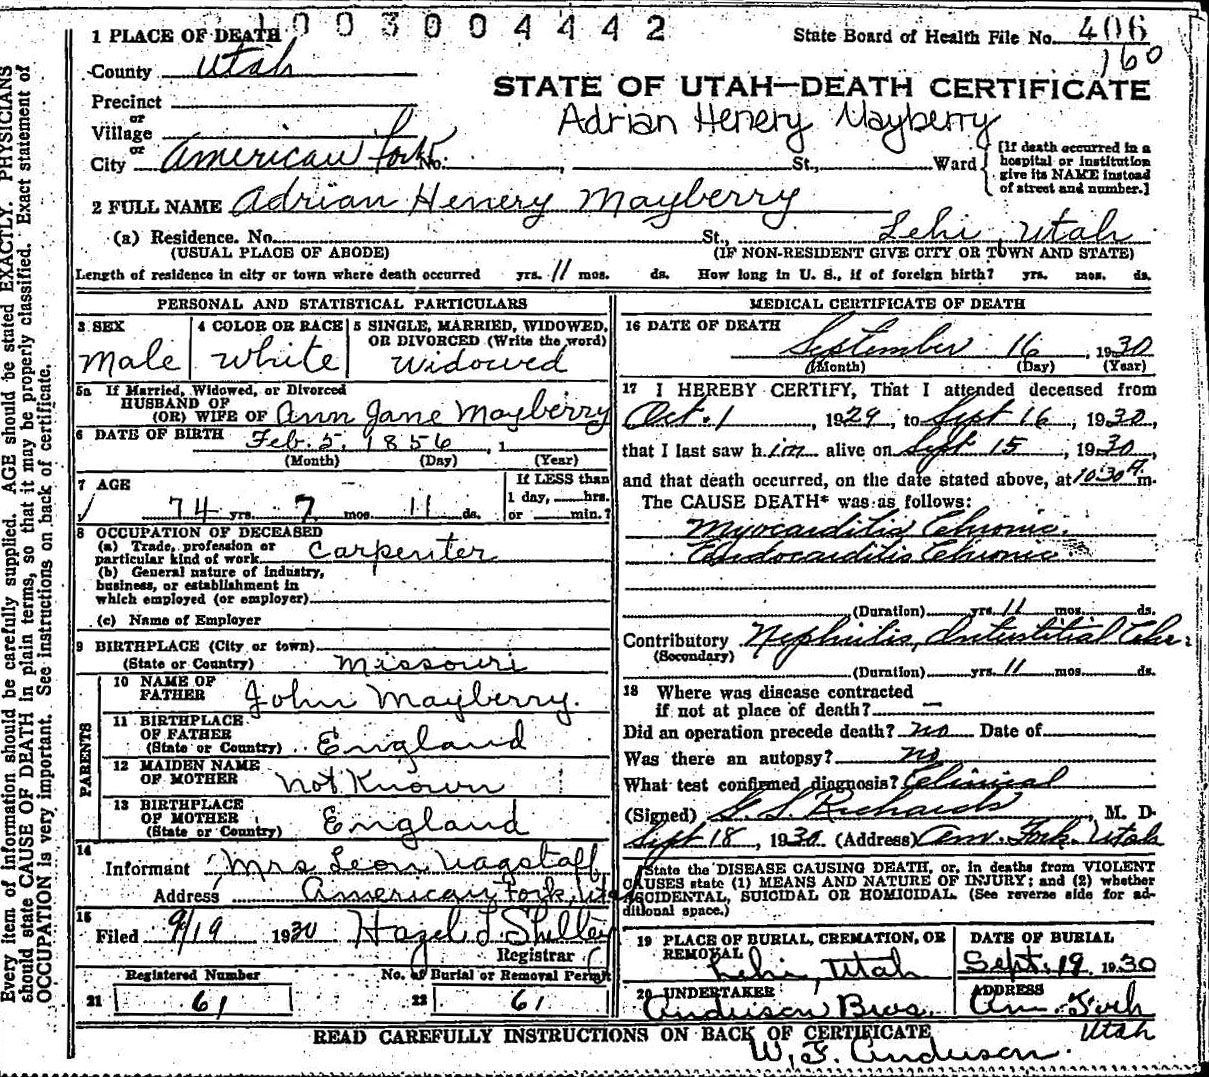 1003004442
1 PLACE OF DEATH
State Board of Health File No. 406
160
County Utah
STATE OF UTAH—DEATH CERTIFICATE
Precinct
or
Village
Adrian Henery Mayberry
or
City American Fork No. , St., Ward
[If death occurred in a hospital or institution give its NAME instead of street and number.]
2 FULL NAME Adrian Henery Mayberry
(a) Residence. No. St., Lehi, Utah
(USUAL PLACE OF ABODE) (IF NON-RESIDENT GIVE CITY OR TOWN AND STATE)
Length of residence in city or town where death occurred yrs. 11 mos. ds. How long in U. S., if of foreign birth? yrs. mos. ds.
PERSONAL AND STATISTICAL PARTICULARS
3 SEX
Male
4 COLOR OR RACE
White
5 SINGLE, MARRIED, WIDOWED, OR DIVORCED (Write the word)
Widowed
5a If Married, Widowed, or Divorced
HUSBAND OF
(OR) WIFE OF Ann Jane Mayberry
6 DATE OF BIRTH Feb. 5, 1856, 1
(Month) (Day) (Year)
7 AGE
74 yrs. 7 mos. 11 ds.
If LESS than
1 day, hrs.
or min.?
8 OCCUPATION OF DECEASED
(a) Trade, profession or
particular kind of work Carpenter
(b) General nature of industry,
business, or establishment in
which employed (or employer)
(c) Name of Employer
9 BIRTHPLACE (City or town)
(State or Country) Missouri
PARENTS
10 NAME OF
FATHER John Mayberry.
11 BIRTHPLACE
OF FATHER
(State or Country) England
12 MAIDEN NAME
OF MOTHER Not Known
13 BIRTHPLACE
OF MOTHER
(State or Country) England
14
Informant Mrs Leon Wagstaff
Address American Fork, Uta
15
Filed 9/19 1930 Hazel L. Shelley
Registrar
Registered Number
21 61
No. of Burial or Removal Permit
22 61
MEDICAL CERTIFICATE OF DEATH
16 DATE OF DEATH
September 16, 1930
(Month) (Day) (Year)
17 I HEREBY CERTIFY, That I attended deceased from
Oct. 1, 1929, to Sept 16, 1930,
that I last saw h im alive on Sept 15, 1930,
and that death occurred, on the date stated above, at 10:30 a.m.
The CAUSE DEATH* was as follows:
Myocarditis Chronic.
Endocarditis Chronic
(Duration) yrs. 11 mos. ds.
Contributory Nephritis, Intestitial Chr.
(Secondary)
(Duration) yrs. 11 mos. ds.
18 Where was disease contracted
if not at place of death? —
Did an operation precede death? no Date of
Was there an autopsy? no
What test confirmed diagnosis? Clinical
(Signed) G. S. Richards, M. D.
Sept 18, 1930 (Address) Am. Fork. Utah
*State the DISEASE CAUSING DEATH, or, in deaths from VIOLENT
CAUSES state (1) MEANS AND NATURE OF INJURY; and (2) whether
ACCIDENTAL, SUICIDAL OR HOMICIDAL. (See reverse side for ad-
ditional space.)
19 PLACE OF BURIAL, CREMATION, OR
REMOVAL
Lehi, Utah
DATE OF BURIAL
Sept. 19 1930
20 UNDERTAKER
Anderson Bros.
ADDRESS
Am. Fork
Utah
READ CAREFULLY INSTRUCTIONS ON BACK OF CERTIFICATE
W. F. Anderson.
Every item of information should be carefully supplied. AGE should be stated EXACTLY. PHYSICIANS
should state CAUSE OF DEATH in plain terms, so that it may be properly classified. Exact statement of
OCCUPATION is very important. See instructions on back of certificate.